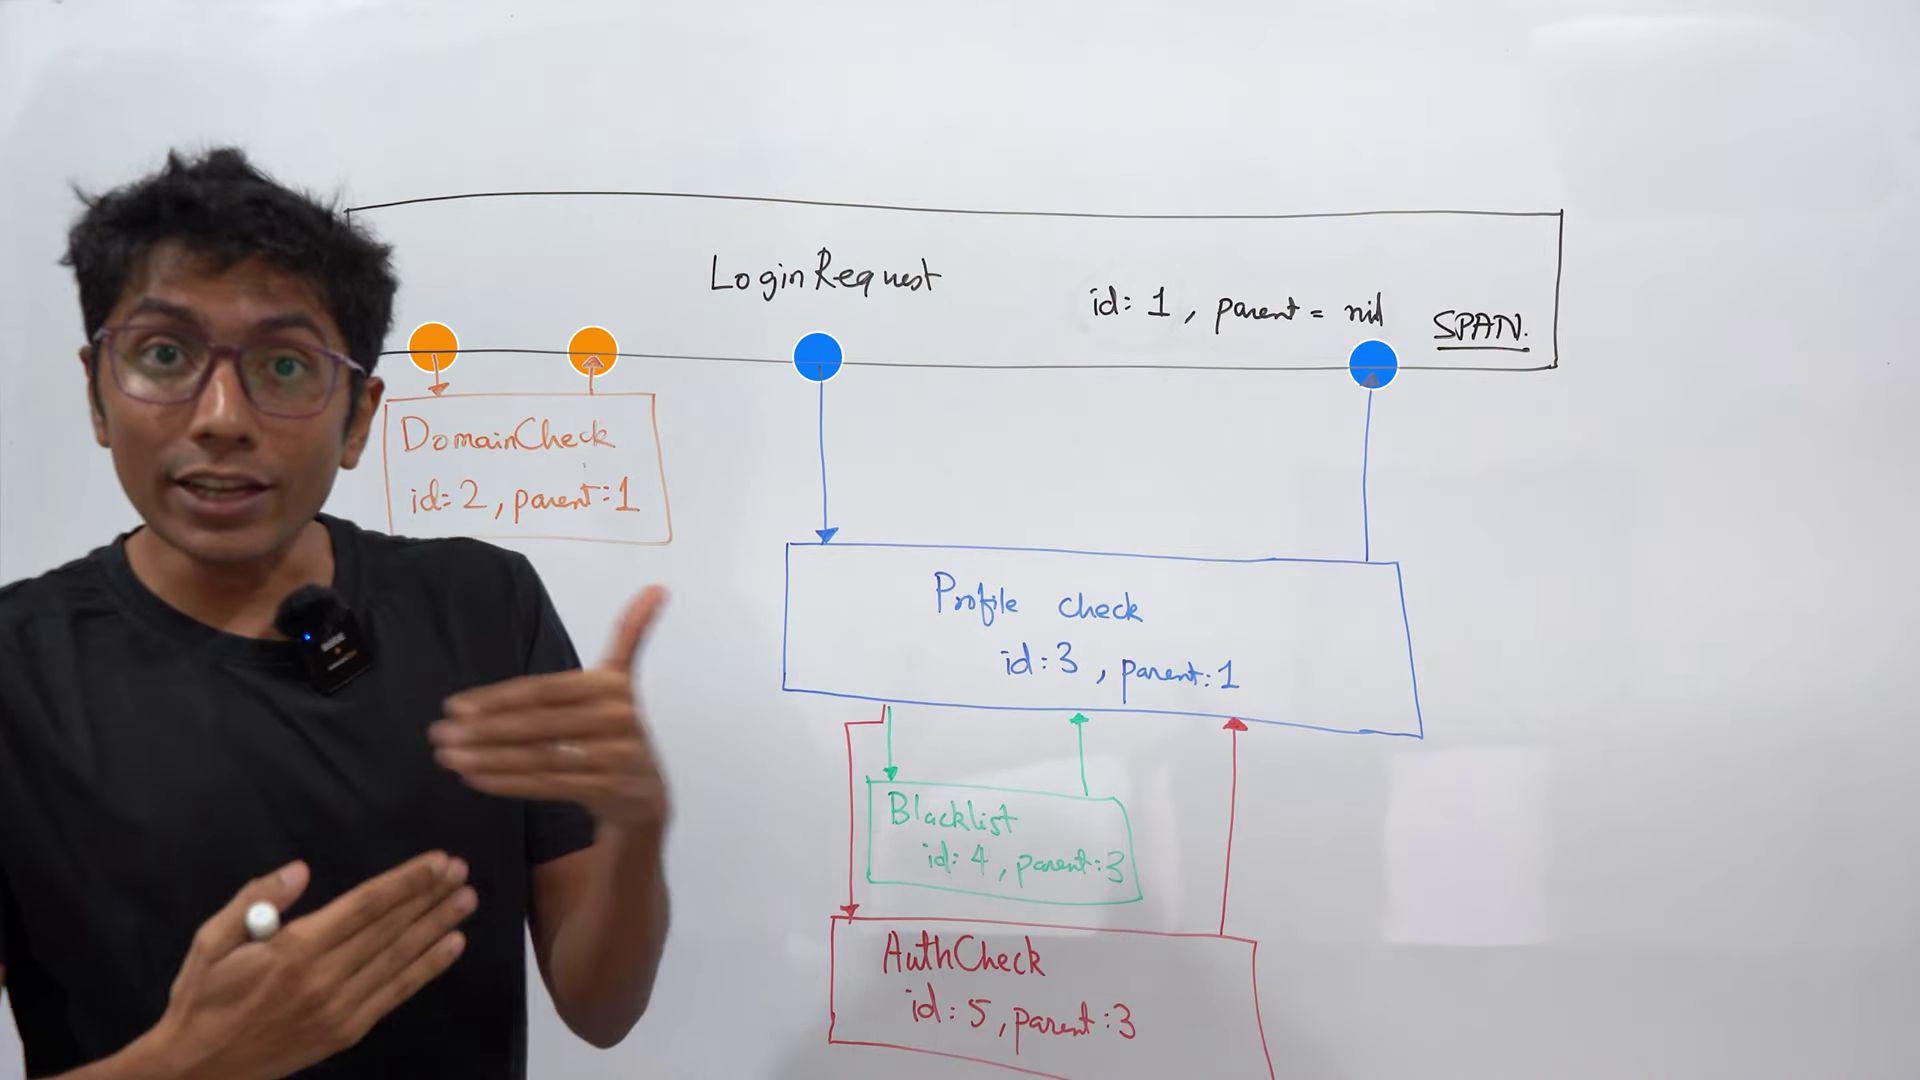 LoginRequest
id: 1, parent = nil
SPAN.
DomainCheck
id: 2, parent: 1
Profile check
id: 3, parent: 1
Blacklist
id: 4, parent: 3
AuthCheck
id: 5, parent: 3
RODE